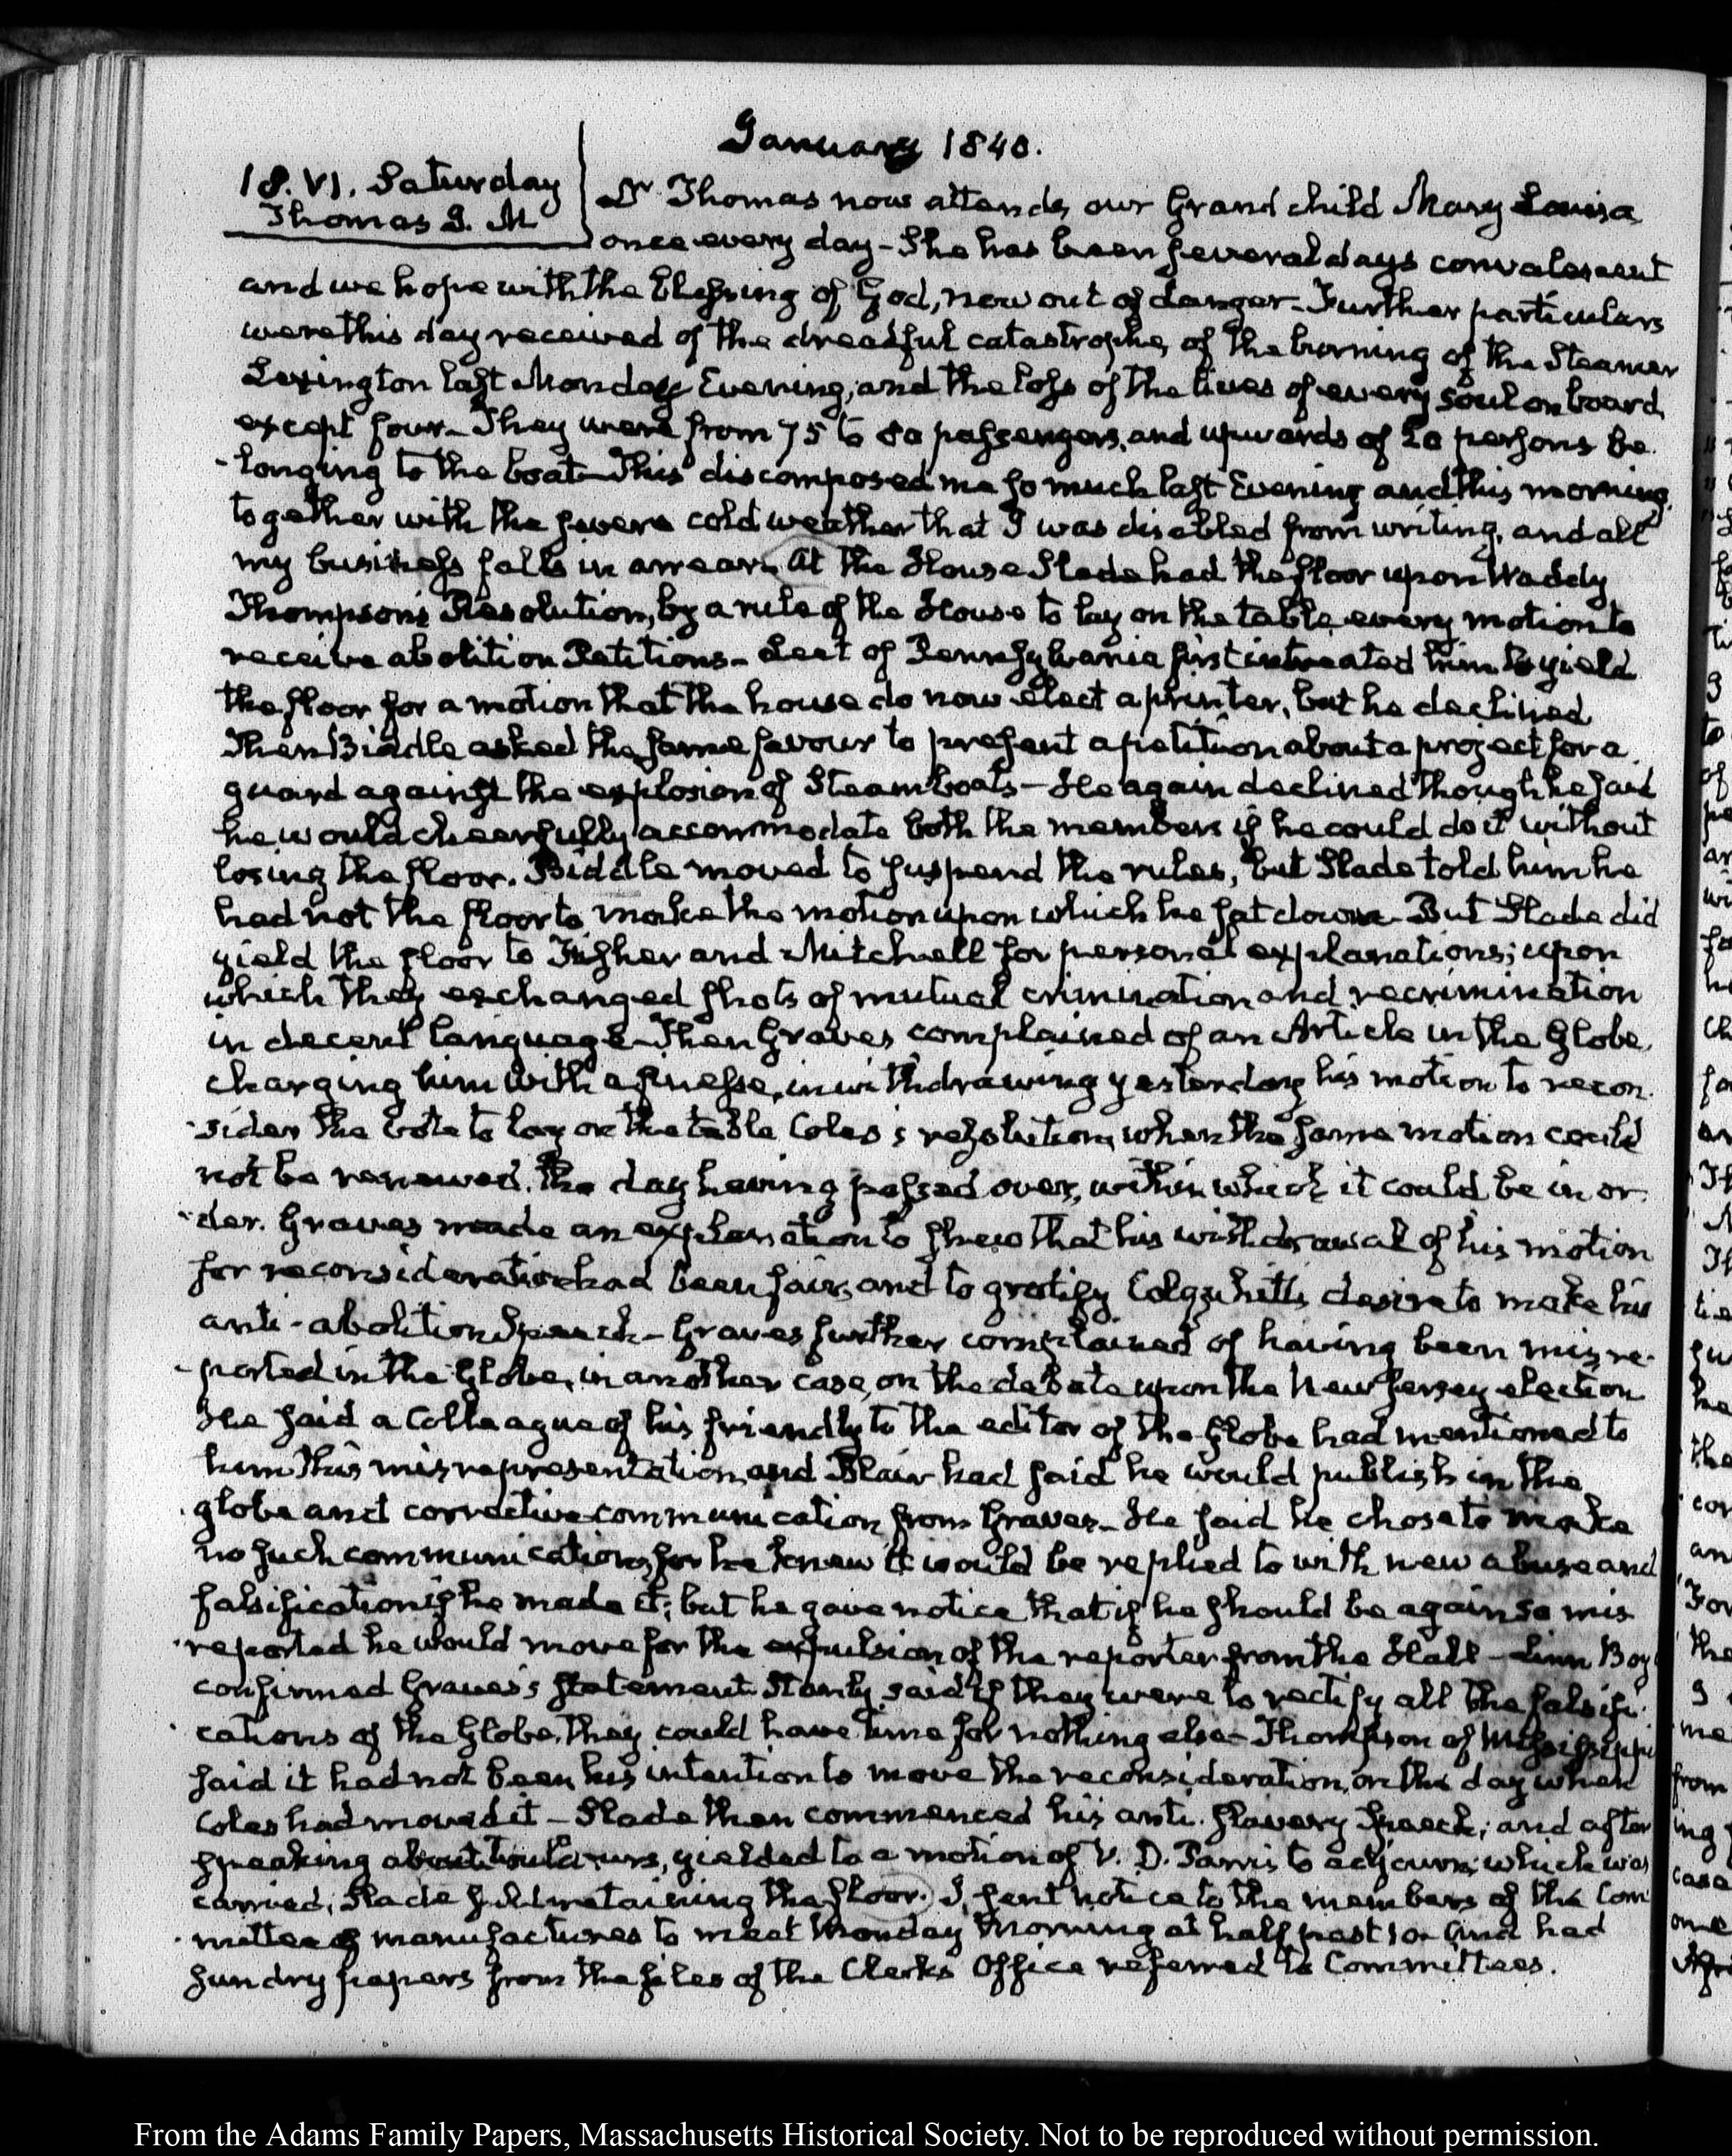 January 1840.
18. VI. Saturday
Thomas J. M
Dr. Thomas now attends our Grand child Mary Louisa
once every day – She has been several days convalescent
and we hope with the blessing of God, now out of danger – Further particulars
were this day received of the dreadful catastrophe, of the burning of the Steamer
Lexington last Monday Evening, and the loss of the lives of every soul on board,
except four – They were from 75 to 80 passengers, and upwards of 20 persons be
-longing to the boat – This discomposed me so much last Evening and this morning,
together with the severe cold weather that I was disabled from writing, and all
my business falls in arrear. At the House Slade had the floor upon Waddy
Thompson's Resolution, by a rule of the House to lay on the table every motion to
receive abolition Petitions – Leet of Pennsylvania first intreated him to yield
the floor for a motion that the house do now elect a printer, but he declined
Then Biddle asked the same favour to present a petition about a project for a
guard against the explosion of Steam boats – He again declined though he said
he would cheerfully accommodate both the members if he could do it without
losing the floor. Biddle moved to suspend the rules, but Slade told him he
had not the floor to make the motion upon which he sat down – But Slade did
yield the floor to Fisher and Mitchell for personal explanations; upon
which they exchanged shots of mutual crimination and recrimination
in decent language – Then Graves complained of an Article in the Globe,
charging him with a finesse, in withdrawing yesterday his motion to recon
-sider the vote to lay on the table Coles's resolution, when the same motion could
not be renewed, the day having passed over, within which it could be in or
-der. Graves made an explanation to shew that his withdrawal of his motion
for reconsideration had been fair, and to gratify Colquhitt's desire to make his
anti-abolition Speech – Graves further complained of having been misre
-ported in the Globe, in another case, on the debate upon the New Jersey election
He said a Colleague of his friendly to the editor of the Globe had mentioned to
him this misrepresentation, and Blair had said he would publish in the
globe and corrective communication from Graves – He said he chose to make
no such communication, for he knew it would be replied to with new abuse and
falsification if he made it; but he gave notice that if he should be again so mis
-reported he would move for the expulsion of the reporter from the Hall – Linn Boy
confirmed Graves's statement. Stanly said if they were to rectify all the falsifi
-cations of the Globe, they could have time for nothing else – Thompson of Mississippi
said it had not been his intention to move the reconsideration, on the day when
Coles had moved it – Slade then commenced his anti-slavery Speech; and after
speaking about two hours, yielded to a motion of V. D. Parris to adjourn; which was
carried; Slade still retaining the floor. I sent notice to the members of the Com
-mittee of manufactures to meet Monday Morning at half past 10 – and had
sundry papers from the files of the Clerks Office referred to Committees.
From the Adams Family Papers, Massachusetts Historical Society. Not to be reproduced without permission.